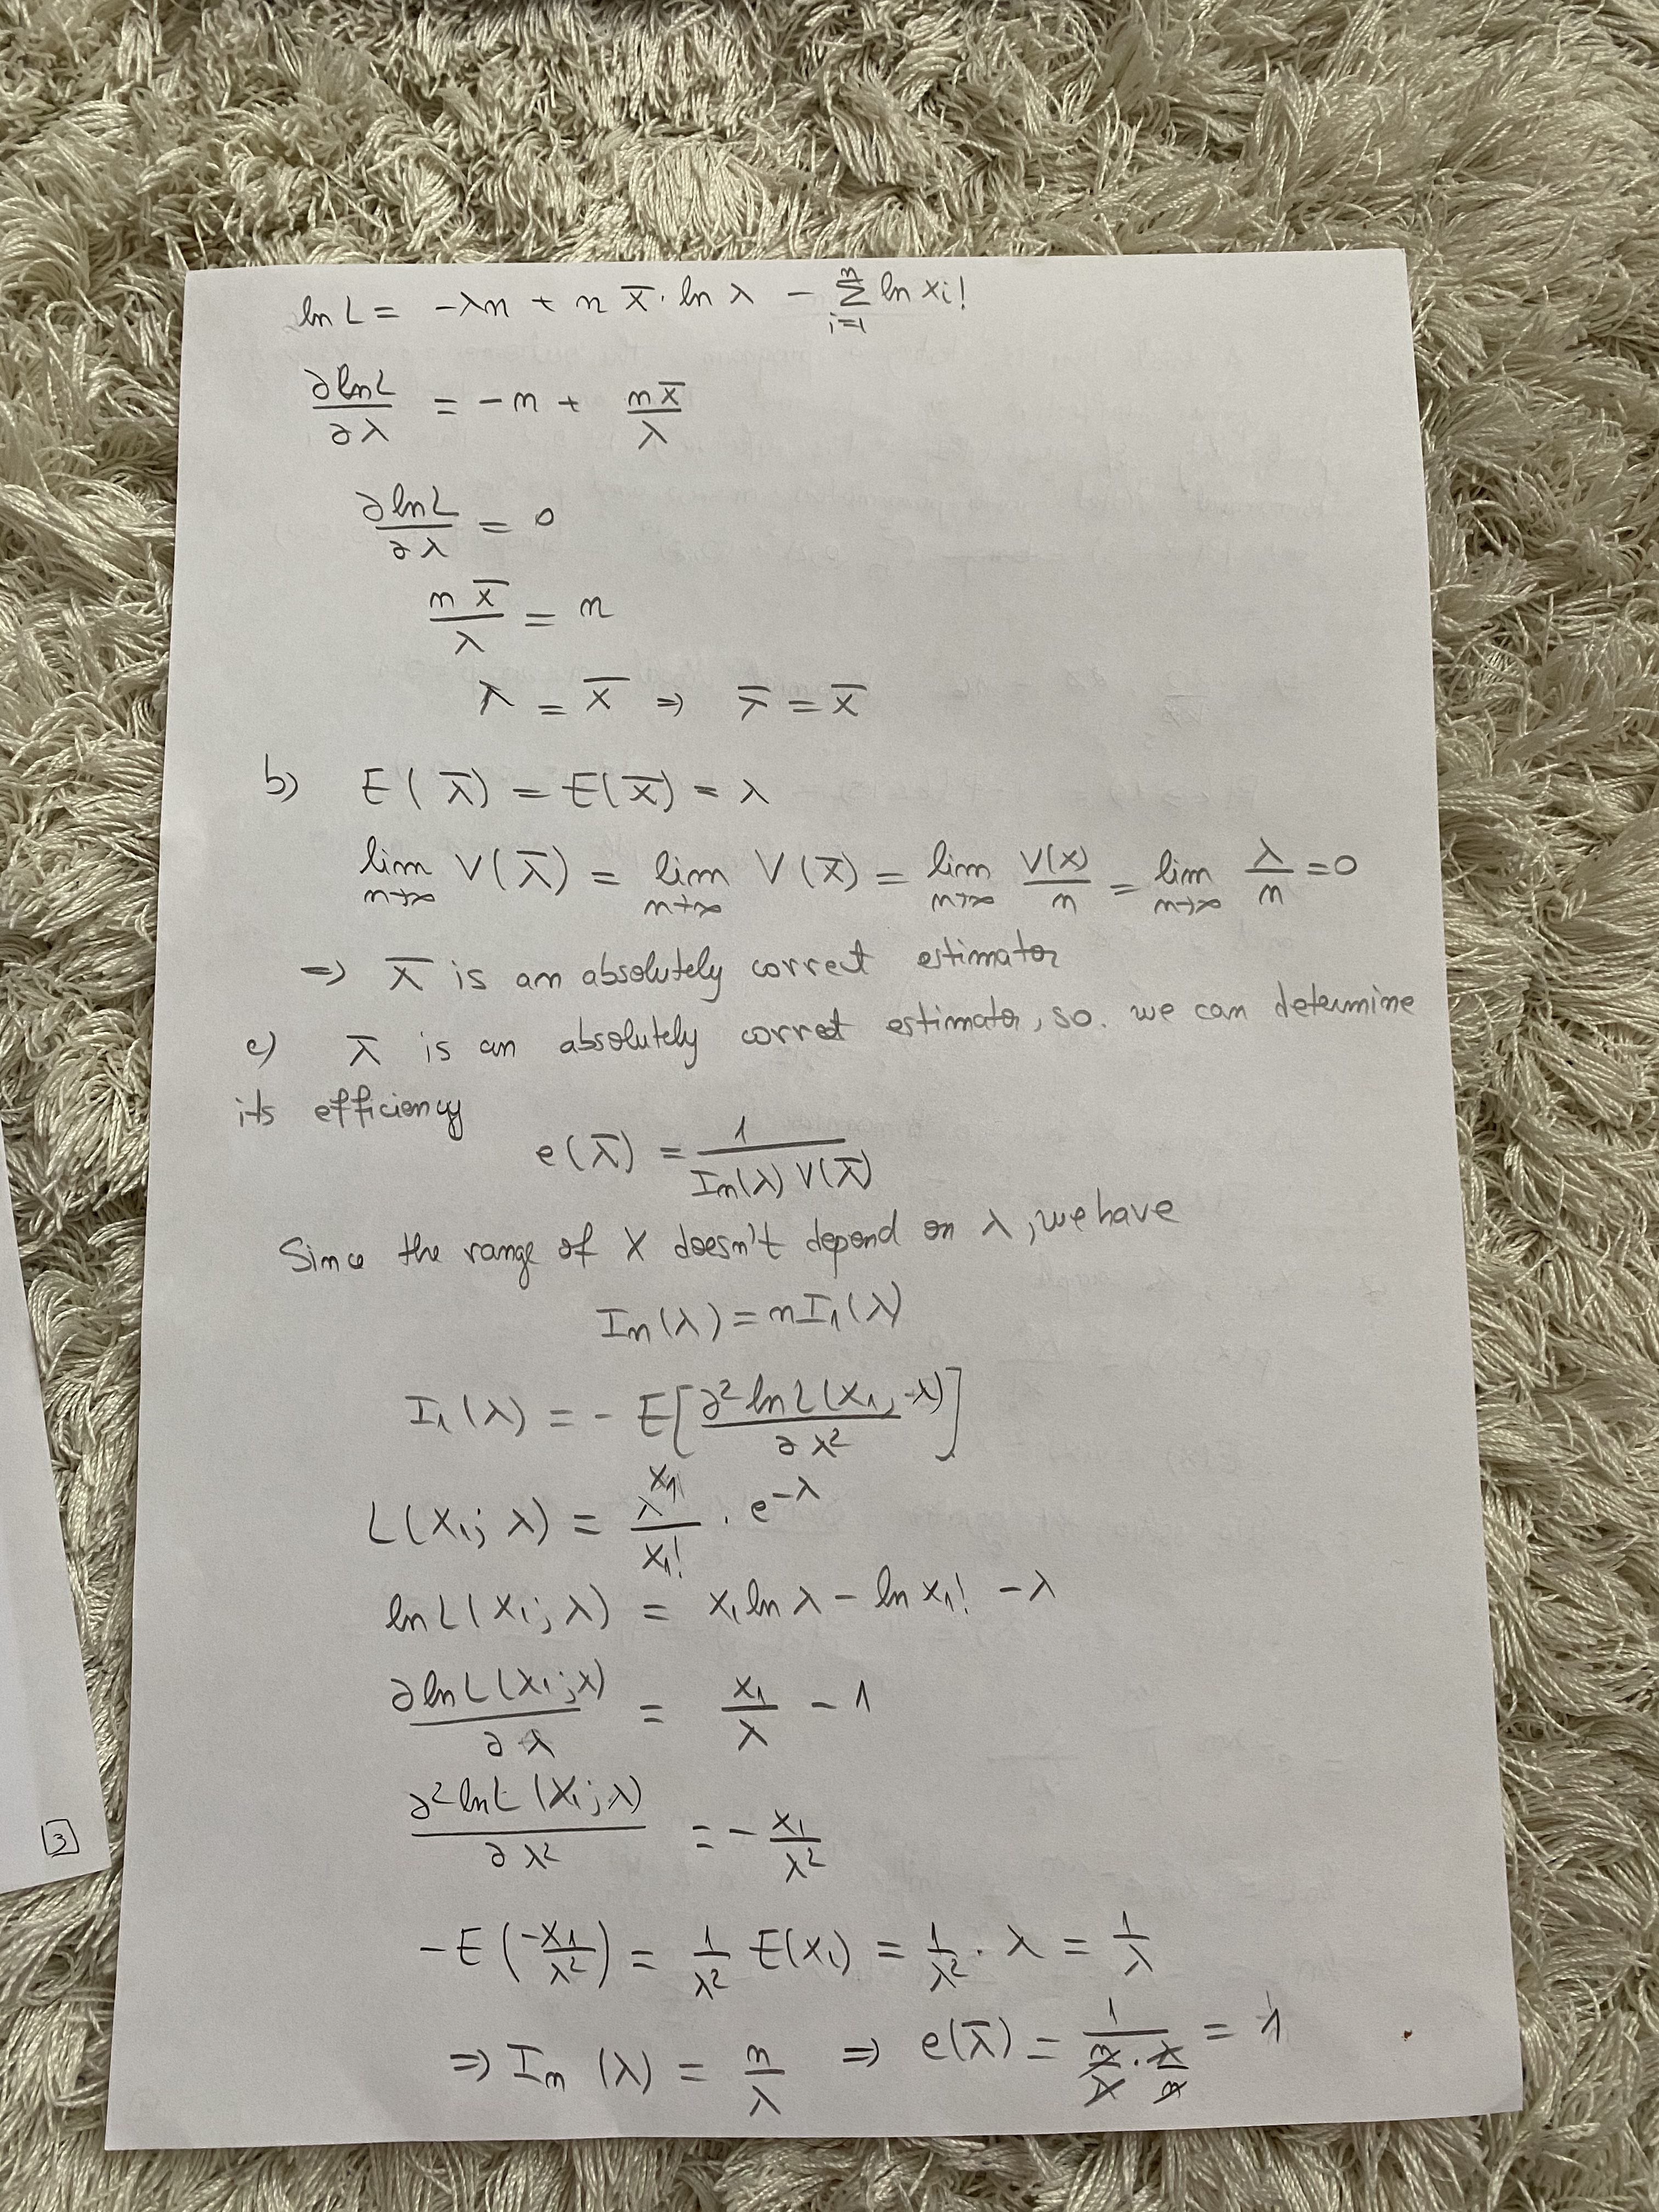 ln L = -λn + n x̄ · ln λ - ∑_{i=1}^{n} ln xi!
∂lnL/∂λ = -n + nx̄/λ
∂lnL/∂λ = 0
n x̄/λ = n
λ = x̄ => λ̄ = x̄
b) E(λ̄) = E(x̄) = λ
lim_{n→∞} V(λ̄) = lim_{n→∞} V(x̄) = lim_{n→∞} V(x)/n = lim_{n→∞} λ/n = 0
=> λ̄ is an absolutely correct estimator
c) λ̄ is an absolutely correct estimator, so. we can determine
its efficiency
e(λ̄) = 1/(In(λ) V(λ̄))
Since the range of X doesn't depend on λ, we have
In(λ) = nI1(λ)
I1(λ) = - E[∂² ln L(X1, λ)/∂λ²]
L(X1; λ) = λ^x1/x1! · e^-λ
ln L(X1; λ) = x1 ln λ - ln x1! - λ
∂lnL(X1; λ)/∂λ = x1/λ - 1
∂² lnL (X1; λ)/∂λ² = - x1/λ²
-E(-x1/λ²) = 1/λ² E(x1) = 1/λ² · λ = 1/λ
=> In (λ) = n/λ => e(λ̄) = 1/(n/λ · λ/n) = 1
3